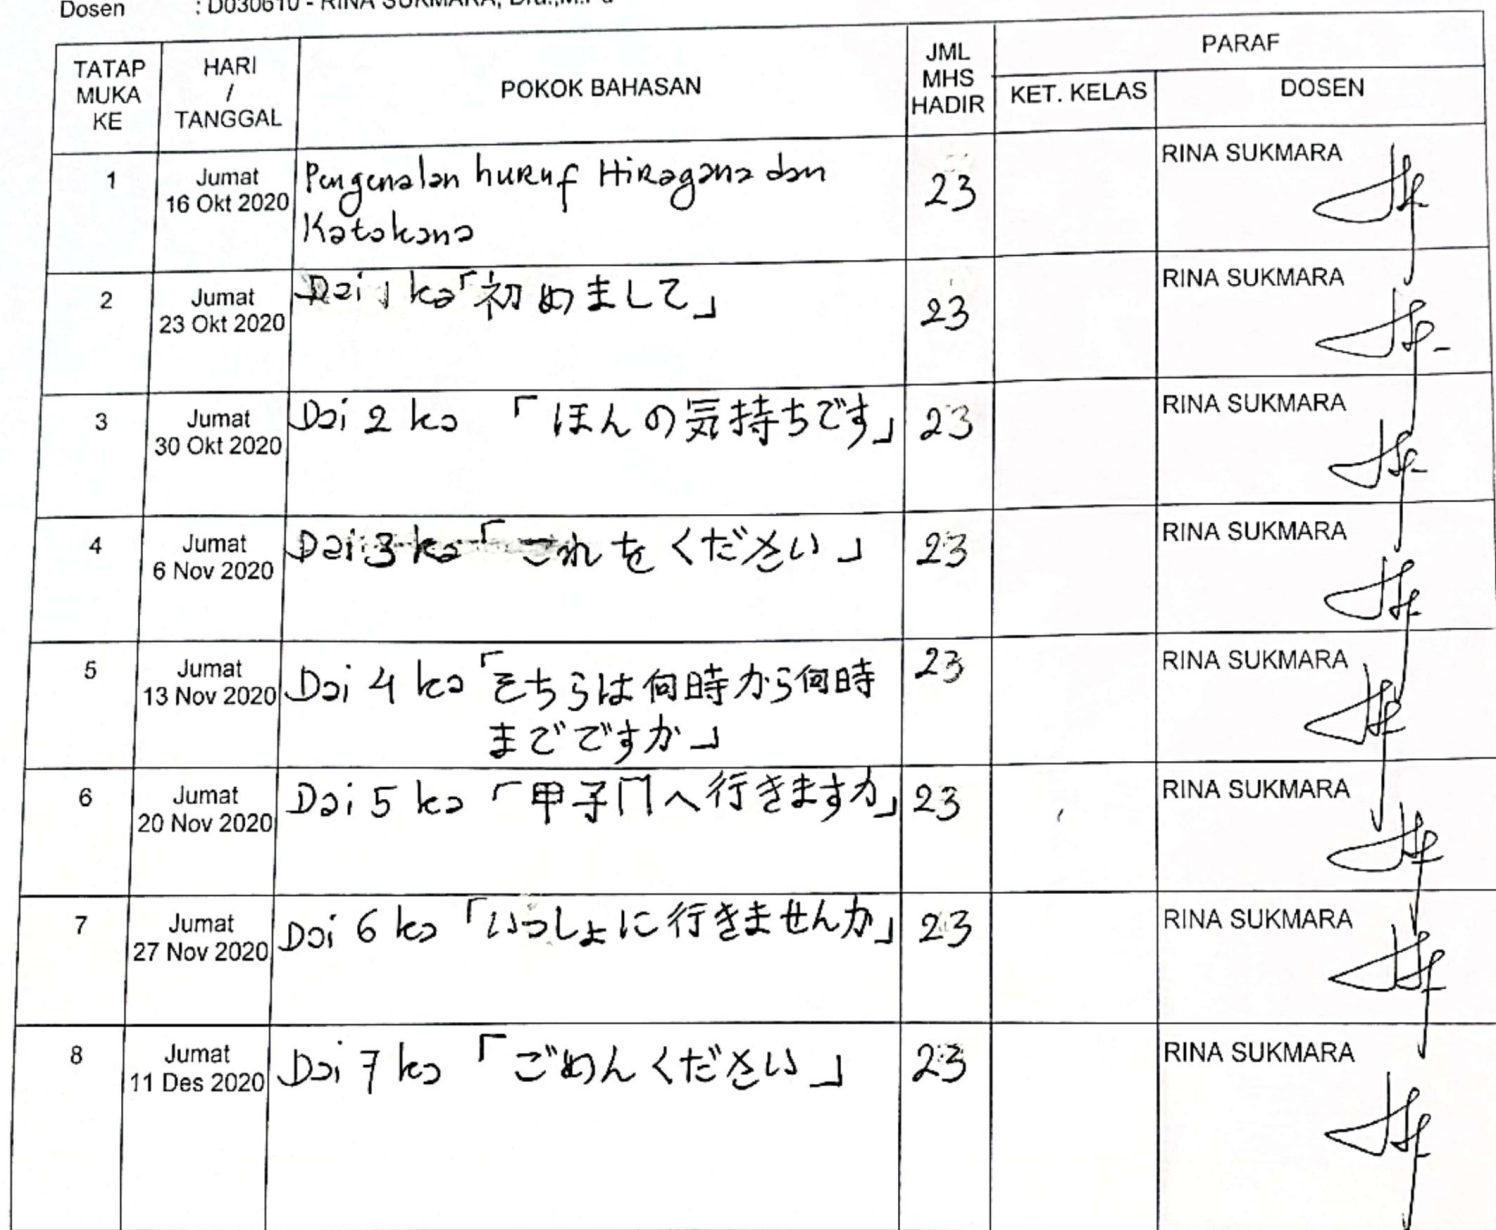 Dosen : D030610 - RINA SUKMARA, Dra.,M.Pd
TATAP MUKA KE
HARI / TANGGAL
POKOK BAHASAN
JML MHS HADIR
PARAF
KET. KELAS
DOSEN
1
Jumat
16 Okt 2020
Pengenalan huruf Hiragana dan
Katakana
23
RINA SUKMARA
2
Jumat
23 Okt 2020
Dai 1 ka「初めまして」
23
RINA SUKMARA
3
Jumat
30 Okt 2020
Dai 2 ka 「ほんの気持ちです」
23
RINA SUKMARA
4
Jumat
6 Nov 2020
Dai 3 ka「これをください」
23
RINA SUKMARA
5
Jumat
13 Nov 2020
Dai 4 ka「そちらは何時から何時
までですか」
23
RINA SUKMARA
6
Jumat
20 Nov 2020
Dai 5 ka 「甲子門へ行きますか」
23
RINA SUKMARA
7
Jumat
27 Nov 2020
Dai 6 ka「いっしょに行きませんか」
23
RINA SUKMARA
8
Jumat
11 Des 2020
Dai 7 ka 「ごめんください」
23
RINA SUKMARA